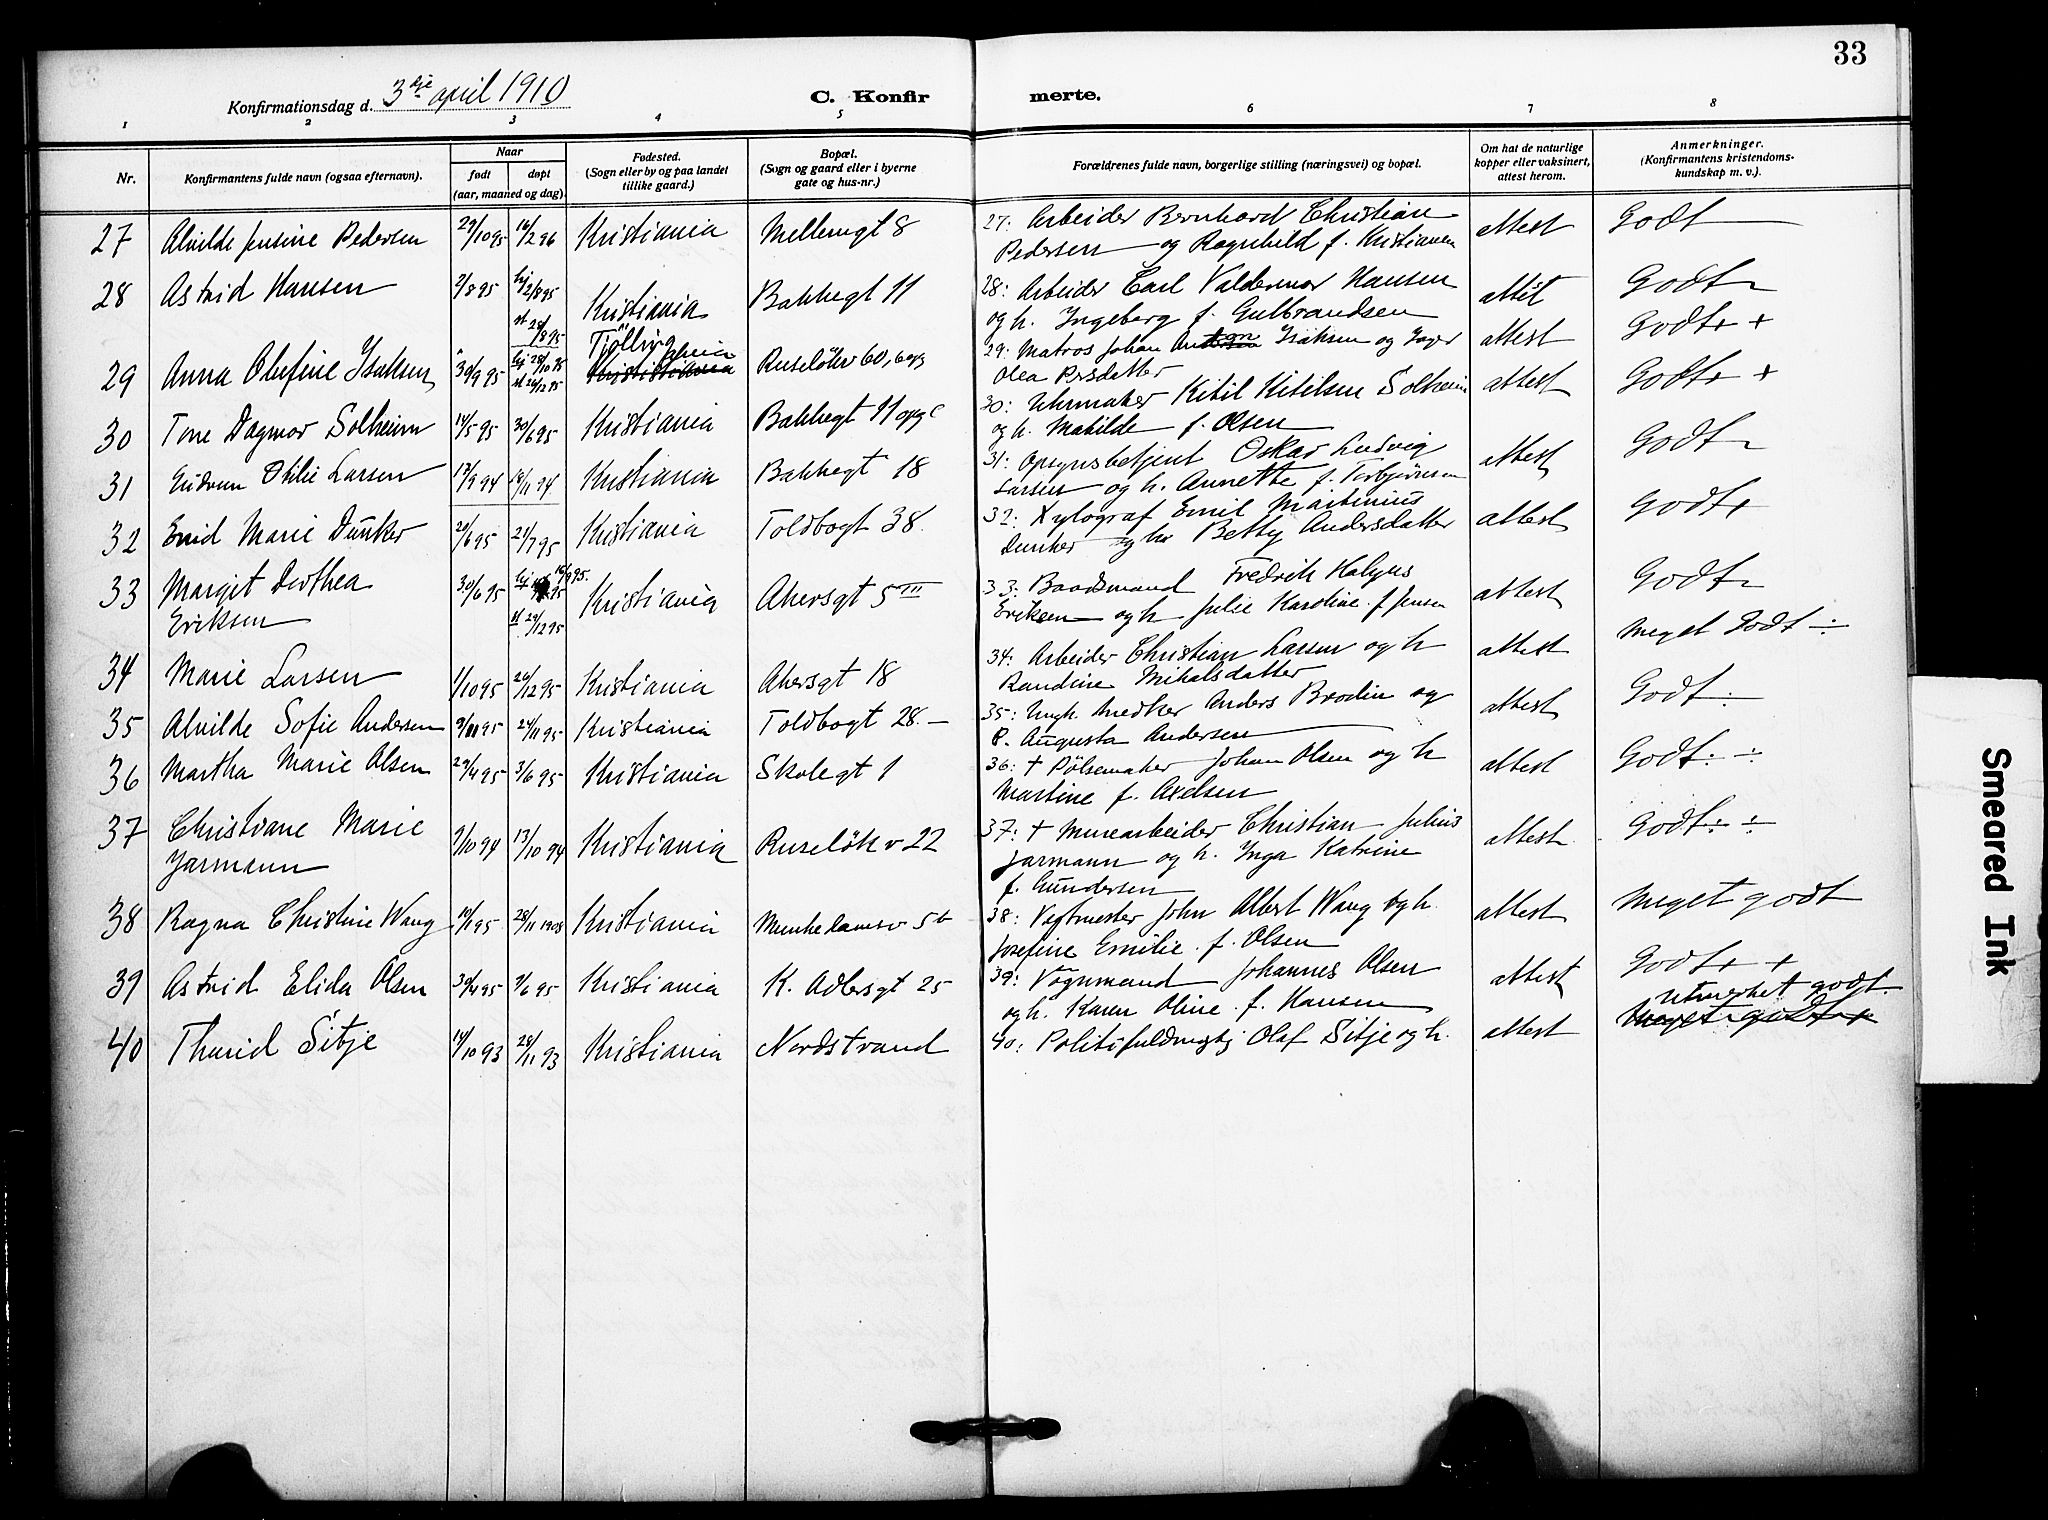 33
Konfirmationsdag d. 3dje april 1910
C. Konfir merte.
1 2 3 4 5 6 7 8
Nr.
Konfirmantens fulde navn (ogsaa efternavn).
Naar
født døpt
(aar, maaned og dag).
Fødested.
(Sogn eller by og paa landet
tillike gaard.)
Bopæl.
(Sogn og gaard eller i byerne
gate og hus-nr.)
Forældrenes fulde navn, borgerlige stilling (næringsvei) og bopæl.
Om hat de naturlige
kopper eller vaksinert,
attest herom.
Anmerkninger.
(Konfirmantens kristendoms-
kundskap m. v.).
27 Alvilde Jensine Pedersen 29/10 95 16/2 96 Kristiania Mellemgt 8
27: Arbeider Bernhard Christian
Pedersen og Ragnhild f. Kristiansen
attest Godt
28 Astrid Hansen 2/8 95 hj 2/8 95
st 28/8 95
Kristiania Bakkegt 11
28: Arbeider Carl Valdemar Hansen
og h. Ingeborg f. Gulbrandsen
attest Godt
29 Anna Olufine Isaksen 30/9 95
Tjølling
Kristiania
Ruseløkv 60, opg
29: Matros Johan Isaksen og Inger
Olea
attest Godt + +
30 Tone Dagmar Solheim 14/5 95 30/6 95 Kristiania Bakkegt 11 opg c
30: Uhrmaker Kitil Kitilsen Solheim
og h. Mathilde f. Olsen
attest Godt + +
31 Gudrun Otilie Larsen 17/9 94 18/11 94 Kristiania Bakkegt 18
31: Opsynsbetjent Oskar Ludvig
Larsen og h. Annette f. Torbjørnsen
attest Godt
32 Enid Marie Dunker 20/6 95 21/7 95 Kristiania Toldbogt 38.
32: Xylograf Emil Martinius
Dunker og h. Betty Andersdatter
attest Godt +
33 Margit Dorthea
Eriksen
30/6 95 hj 16/9 95.
st 29/12 95
Kristiania Akersgt 5 III
33: Baadsmand Fredrik
Eriksen og h Julie Karoline f Jensen
attest Godt
34 Marie Larsen 1/10 95 26/12 95 Kristiania Akersgt 18
34: Arbeider Christian Larsen og h
Randine Mikalsdatter
attest Meget Godt ÷
35 Alvilde Sofie Andersen 9/11 95 24/11 95 Kristiania Toldbogt 28 –
35: Ungk. Anders Brodin og
P. Augusta Andersen
attest Godt :
36 Martha Marie Olsen 29/4 95 3/6 95 Kristiania Skolegt 1
36: † Pølsemaker Johan Olsen og h
Martine f. Axelsen
attest Godt ÷ ÷
37 Christiane Marie
Jarmann
9/10 94 17/10 94 Kristiania Ruseløkv 22
37: † Murearbeider Christian Julius
Jarmann og h. Inga Katrine
f. Gundersen
attest Godt ÷ ÷
38 Ragna Christine Wang 18/1 95 28/11 1908 Kristiania Munkedamsv 5b
38: Vegtmester John Albert Wang og h.
Josefine Emilie f. Olsen
attest Meget godt
39 Astrid Elida Olsen 30/4 95 9/6 95 Kristiania K. Adlersgt 25
39: Vognmand Johannes Olsen
og h. Karen Oline f. Hansen
attest Godt + +
40 Thurid Sitje 14/10 93 28/11 93 Kristiania Nordstrand
40: Politifuldmegtig Olaf Sitje og h.
attest
Utmerket godt.
Meget godt +
Smeared Ink